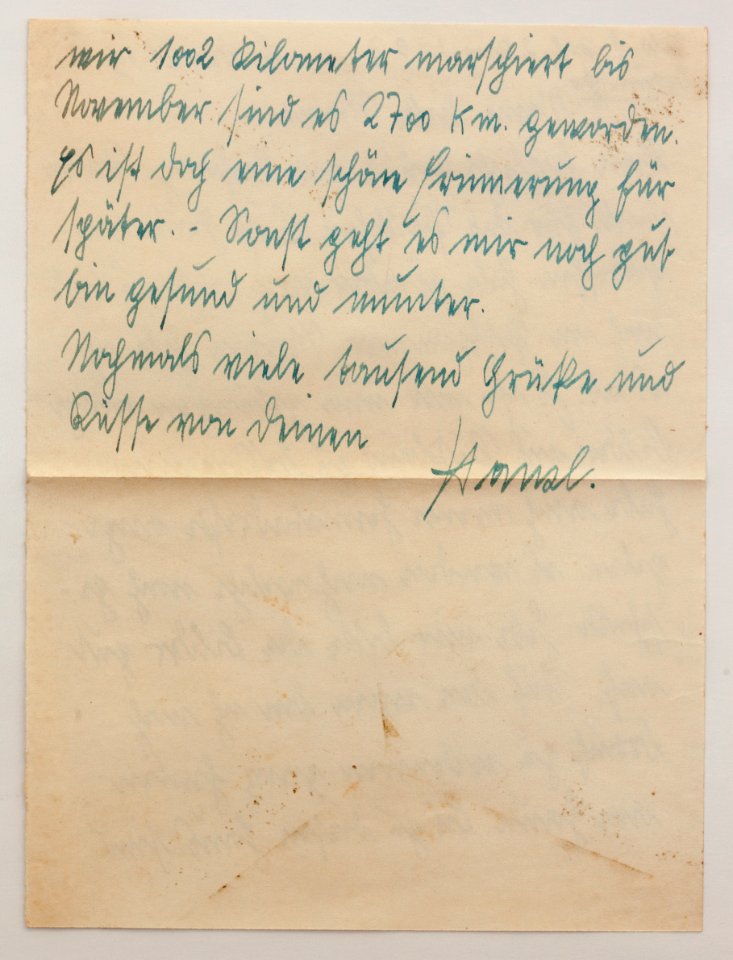 wir 1002 Kilometer marschiert bis
November sind es 2700 Km. geworden.
Es ist doch eine schöne Erinnerung für
später. - Sonst geht es mir noch gut
bin gesund und munter.
Nochmals viele tausend Grüße und
Küsse von deinen
Hansl.